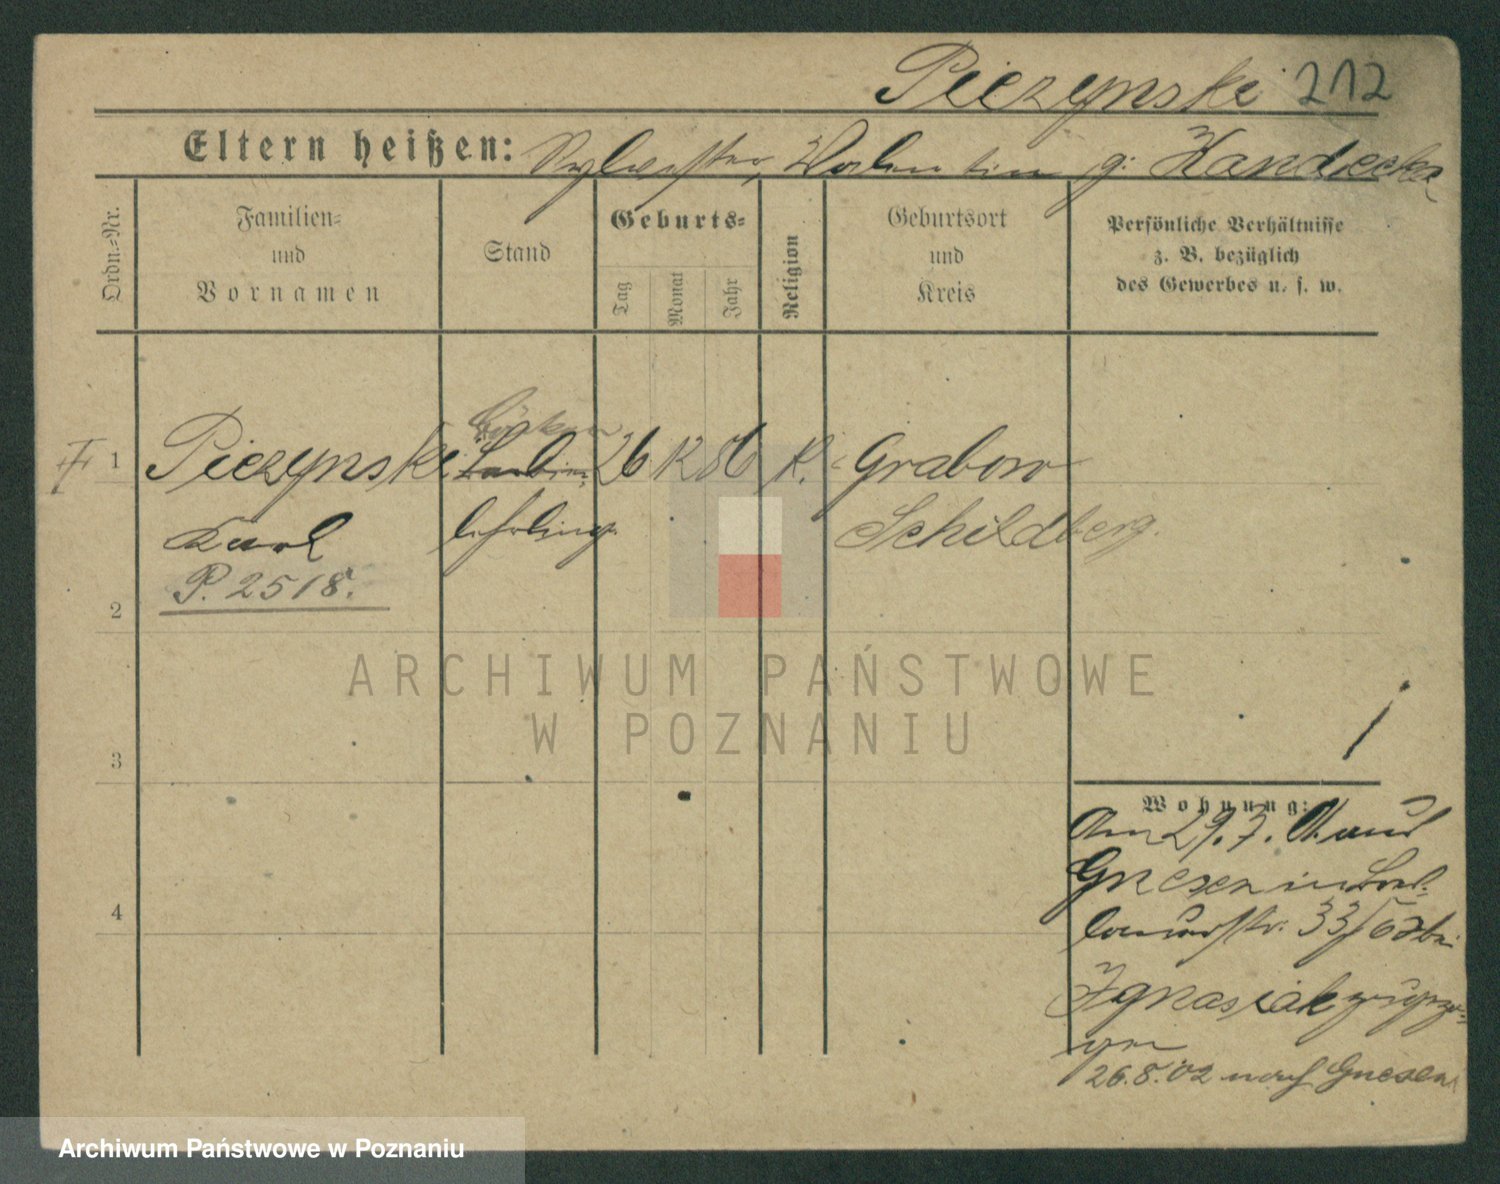 Piezynski 212
Eltern heißen: Sylvester, Valentin g: Kandecka
Ordn.=Nr.
Familien=
und
Vornamen
Stand
Geburts=
Tag
Monat
Jahr
Religion
Geburtsort
und
Kreis
Persönliche Verhältnisse
z. B. bezüglich
des Gewerbes u. s. w.
1 Piezynski 26 12 86 K. Grabow
Karl lehrling Schildberg.
P. 2518.
2
3
4
Wohnung:
Am 29. 7. 01 aus
Gnesen in
33/ bei
Ignasiak zugezo=
gen
26.8.02 nach Gnesen
ARCHIWUM PAŃSTWOWE
W POZNANIU
Archiwum Państwowe w Poznaniu